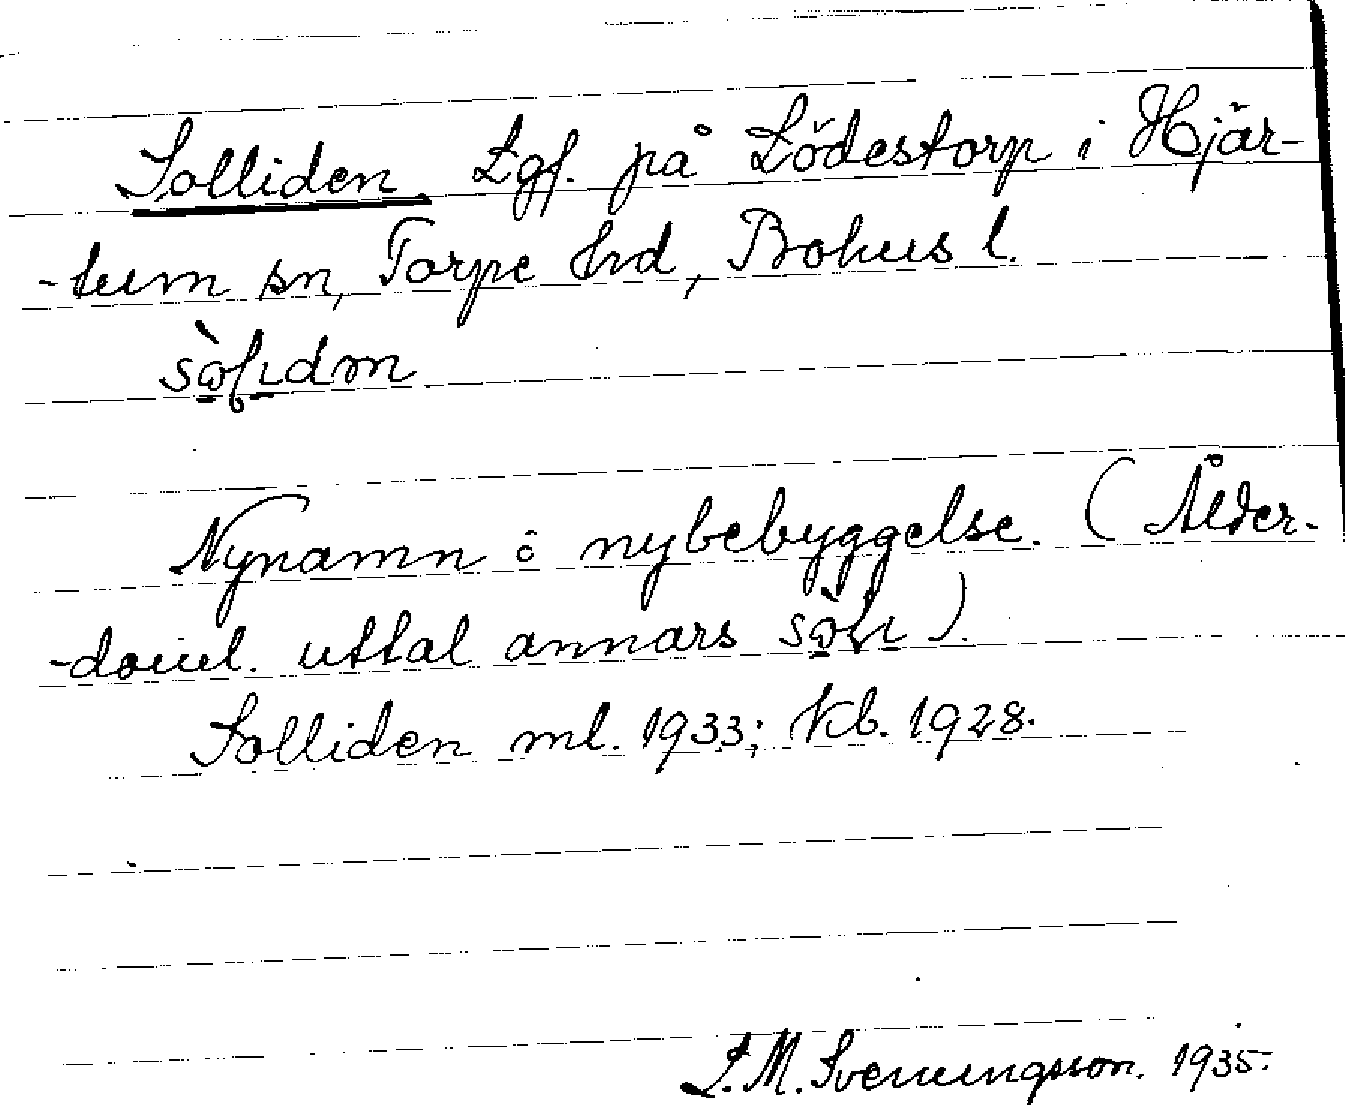 Solliden. Lgf. på Lödestorp i Hjär-
-tum sn, Torpe hd, Bohus l.
Nynamn å nybebyggelse. (Ålder-
-doml. uttal annars
Solliden ml. 1933; kb. 1928.
L. M. Svenungsson. 1935.